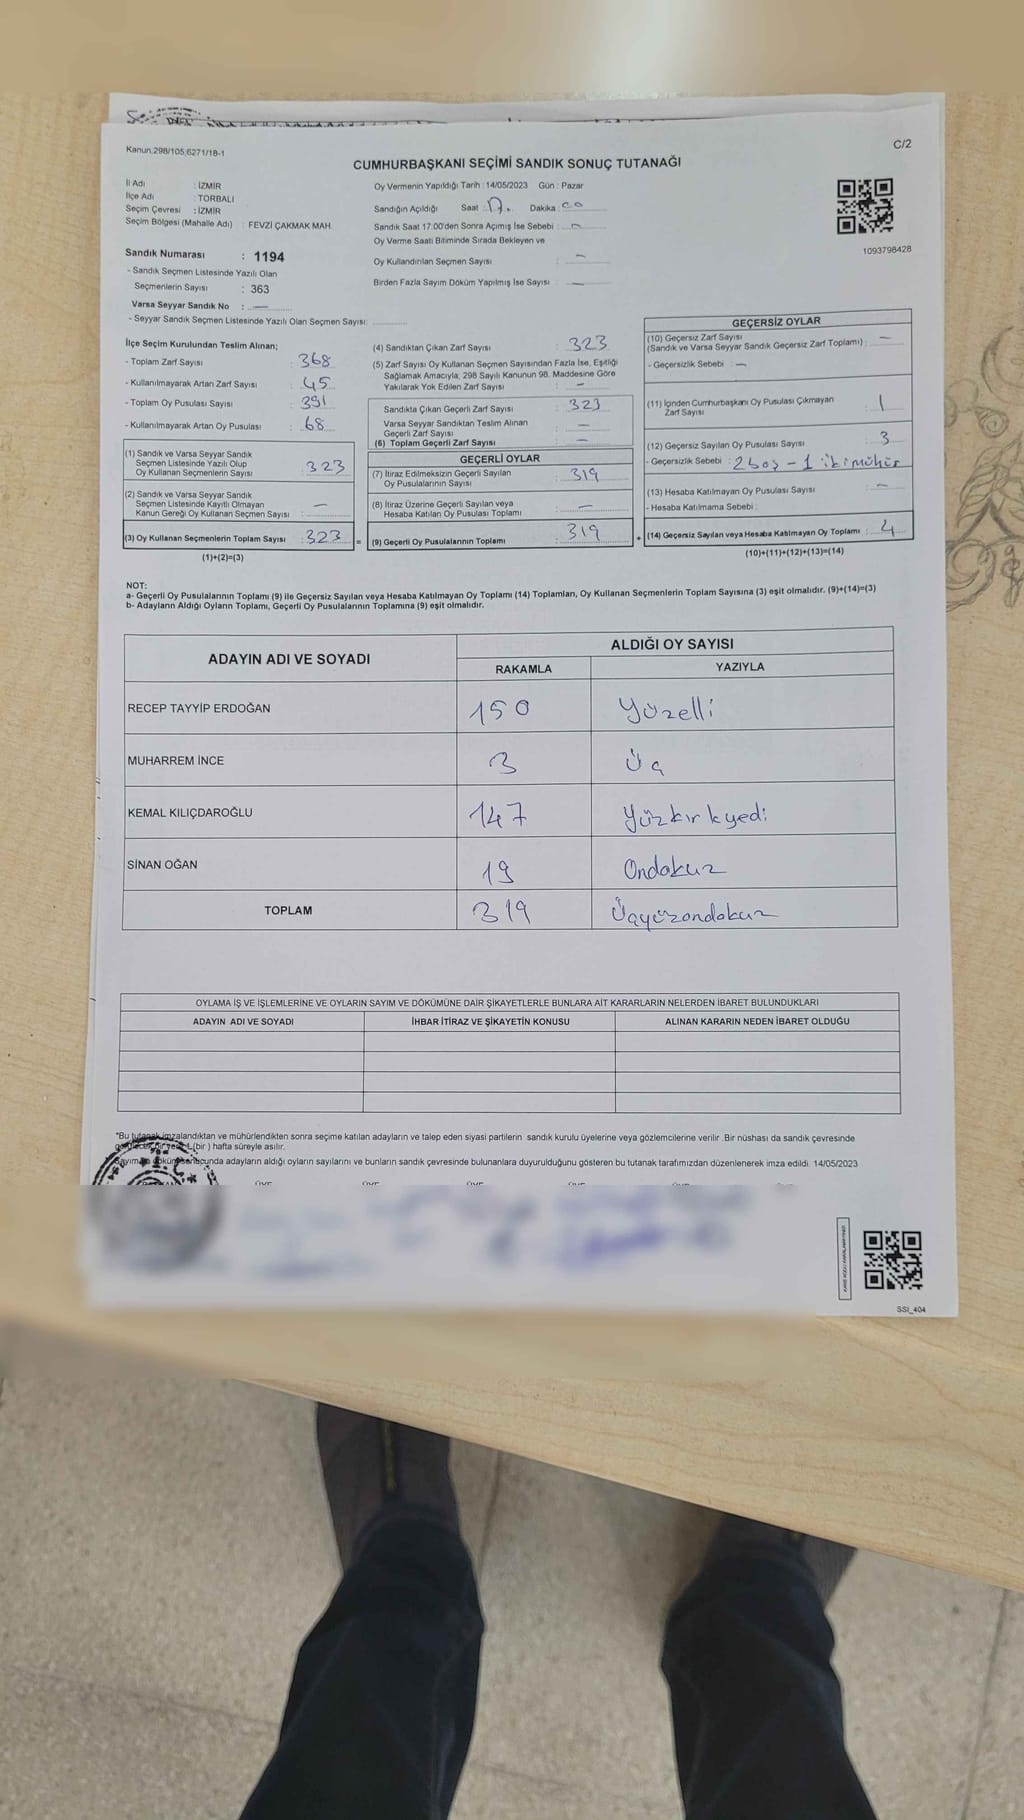 C/2
Kanun.298/105,6271/18-1
CUMHURBAŞKANI SEÇİMİ SANDIK SONUÇ TUTANAĞI
İl Adı : İZMİR
İlçe Adı : TORBALI
Seçim Çevresi : İZMİR
Seçim Bölgesi (Mahalle Adı) : FEVZİ ÇAKMAK MAH.
Sandık Numarası : 1194
- Sandık Seçmen Listesinde Yazılı Olan
Seçmenlerin Sayısı : 363
Varsa Seyyar Sandık No : —
- Seyyar Sandık Seçmen Listesinde Yazılı Olan Seçmen Sayısı:
Oy Vermenin Yapıldığı Tarih : 14/05/2023 Gün : Pazar
Sandığın Açıldığı Saat : 17. Dakika : 00
Sandık Saat 17:00'den Sonra Açımış İse Sebebi : —
Oy Verme Saati Bitiminde Sırada Bekleyen ve
Oy Kullandırılan Seçmen Sayısı : —
Birden Fazla Sayım Döküm Yapılmış İse Sayısı : —
1093798428
İlçe Seçim Kurulundan Teslim Alınan;
- Toplam Zarf Sayısı : 368
- Kullanılmayarak Artan Zarf Sayısı : 45
- Toplam Oy Pusulası Sayısı : 391
- Kullanılmayarak Artan Oy Pusulası : 68
(1) Sandık ve Varsa Seyyar Sandık
Seçmen Listesinde Yazılı Olup
Oy Kullanan Seçmenlerin Sayısı : 323
(2) Sandık ve Varsa Seyyar Sandık
Seçmen Listesinde Kayıtlı Olmayan
Kanun Gereği Oy Kullanan Seçmen Sayısı : —
(3) Oy Kullanan Seçmenlerin Toplam Sayısı : 323 =
(1)+(2)=(3)
(4) Sandıktan Çıkan Zarf Sayısı : 323
(5) Zarf Sayısı Oy Kullanan Seçmen Sayısından Fazla İse, Eşitliği
Sağlamak Amacıyla; 298 Sayılı Kanunun 98. Maddesine Göre
Yakılarak Yok Edilen Zarf Sayısı : —
Sandıkta Çıkan Geçerli Zarf Sayısı : 323
Varsa Seyyar Sandıktan Teslim Alınan
Geçerli Zarf Sayısı : —
(6) Toplam Geçerli Zarf Sayısı : —
GEÇERLİ OYLAR
(7) İtiraz Edilmeksizin Geçerli Sayılan
Oy Pusulalarının Sayısı : 319
(8) İtiraz Üzerine Geçerli Sayılan veya
Hesaba Katılan Oy Pusulası Toplamı : —
(9) Geçerli Oy Pusulalarının Toplamı : 319 +
GEÇERSİZ OYLAR
(10) Geçersiz Zarf Sayısı
(Sandık ve Varsa Seyyar Sandık Geçersiz Zarf Toplamı) : —
- Geçersizlik Sebebi : —
(11) İçinden Cumhurbaşkanı Oy Pusulası Çıkmayan
Zarf Sayısı : 1
(12) Geçersiz Sayılan Oy Pusulası Sayısı : 3
- Geçersizlik Sebebi : 2 boş - 1 iki mühür
(13) Hesaba Katılmayan Oy Pusulası Sayısı : —
- Hesaba Katılmama Sebebi :
(14) Geçersiz Sayılan veya Hesaba Katılmayan Oy Toplamı : 4
(10)+(11)+(12)+(13)=(14)
NOT:
a- Geçerli Oy Pusulalarının Toplamı (9) ile Geçersiz Sayılan veya Hesaba Katılmayan Oy Toplamı (14) Toplamları, Oy Kullanan Seçmenlerin Toplam Sayısına (3) eşit olmalıdır. (9)+(14)=(3)
b- Adayların Aldığı Oyların Toplamı, Geçerli Oy Pusulalarının Toplamına (9) eşit olmalıdır.
ADAYIN ADI VE SOYADI ALDIĞI OY SAYISI
RAKAMLA YAZIYLA
RECEP TAYYİP ERDOĞAN 150 Yüzelli
MUHARREM İNCE 3 Üç
KEMAL KILIÇDAROĞLU 147 Yüzkırkyedi
SİNAN OĞAN 19 Ondokuz
TOPLAM 319 Üçyüzondokuz
OYLAMA İŞ VE İŞLEMLERİNE VE OYLARIN SAYIM VE DÖKÜMÜNE DAİR ŞİKAYETLERLE BUNLARA AİT KARARLARIN NELERDEN İBARET BULUNDUKLARI
ADAYIN ADI VE SOYADI İHBAR İTİRAZ VE ŞİKAYETİN KONUSU ALINAN KARARIN NEDEN İBARET OLDUĞU
*Bu tutanak imzalandıktan ve mühürlendikten sonra seçime katılan adayların ve talep eden siyasi partilerin sandık kurulu üyelerine veya gözlemcilerine verilir .Bir nüshası da sandık çevresinde
(bir ) hafta süreyle asılır.
adayların aldığı oyların sayılarını ve bunların sandık çevresinde bulunanlara duyurulduğunu gösteren bu tutanak tarafımızdan düzenlenerek imza edildi. 14/05/2023
SSI_404